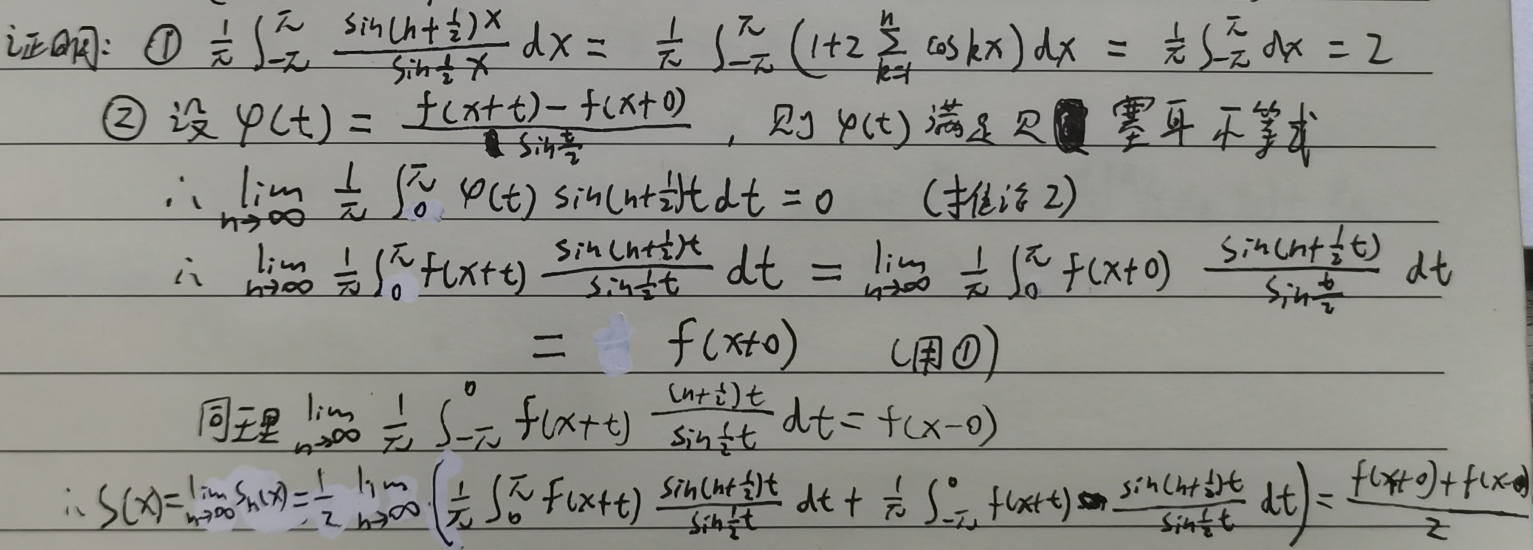 证明: ① 1/π ∫_{-π}^{π} sin(n+1/2)x / sin 1/2 x dx = 1/π ∫_{-π}^{π} (1+2 ∑_{k=1}^{n} cos kx) dx = 1/π ∫_{-π}^{π} dx = 2
② 设 φ(t) = f(x+t) - f(x+0) / sin t/2 , 则 φ(t) 满足贝塞耳不等式
∴ lim_{n→∞} 1/π ∫_0^π φ(t) sin(n+1/2)t dt = 0 (推论2)
∴ lim_{n→∞} 1/π ∫_0^π f(x+t) sin(n+1/2)t / sin 1/2 t dt = lim_{n→∞} 1/π ∫_0^π f(x+0) sin(n+1/2 t) / sin t/2 dt
= f(x+0) (用①)
同理 lim_{n→∞} 1/π ∫_{-π}^0 f(x+t) (n+1/2)t / sin 1/2 t dt = f(x-0)
∴ S(x) = lim_{n→∞} S_n(x) = 1/2 lim_{n→∞} (1/π ∫_0^π f(x+t) sin(n+1/2)t / sin 1/2 t dt + 1/π ∫_{-π}^0 f(x+t) sin(n+1/2)t / sin 1/2 t dt) = f(x+0)+f(x-0) / 2